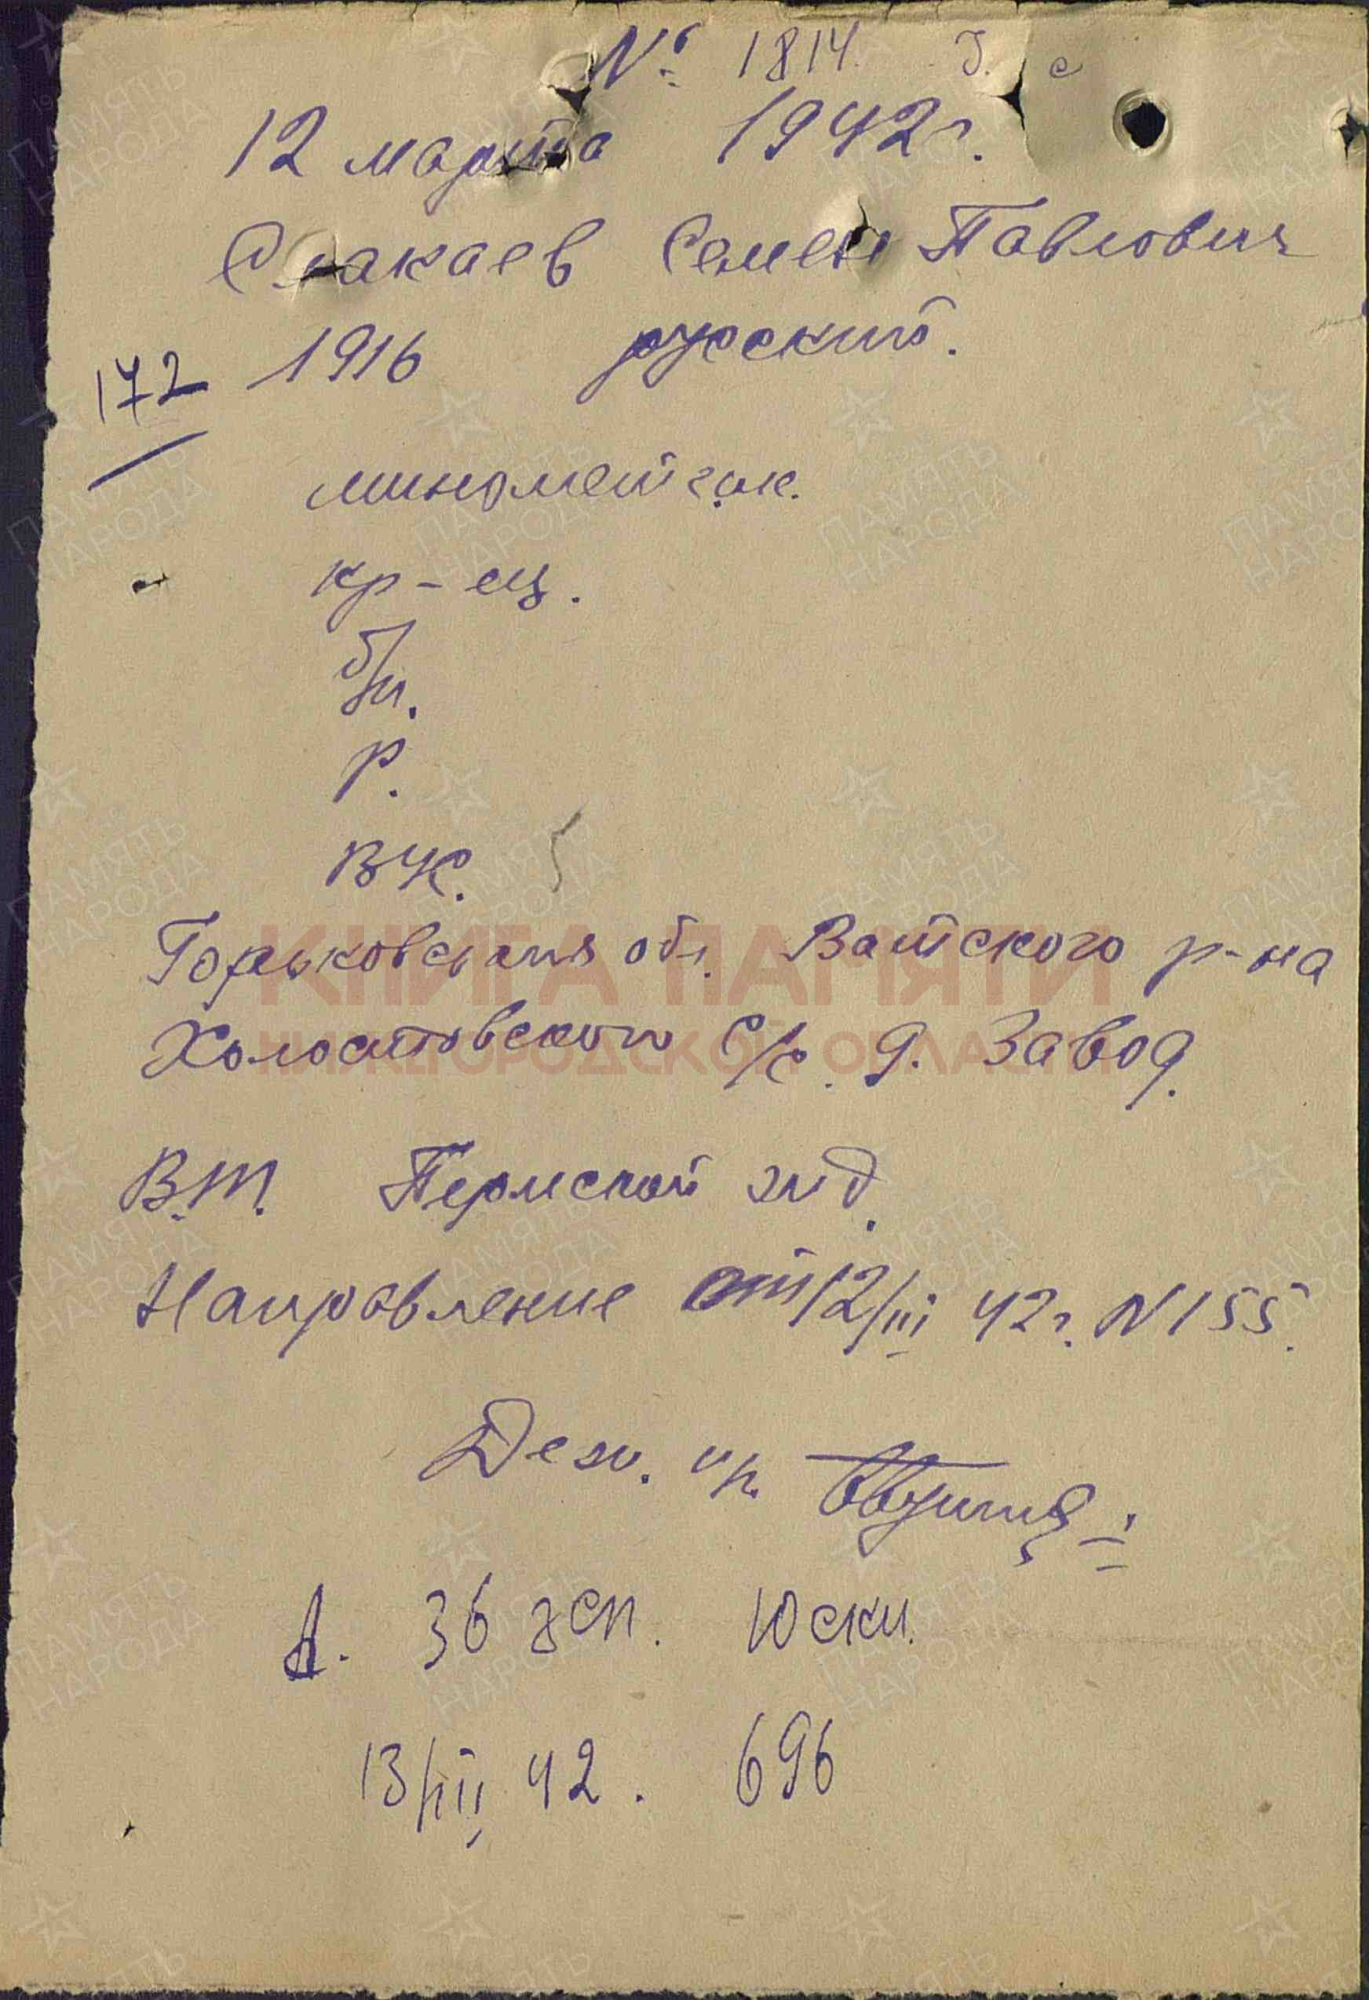 № 1814.
12 марта 1942 г.
Семен Павлович
172 1916 русский.
минометчик.
кр-ец.
б/п.
р.
ВК.
Горьковская обл. Ватского р-на
Холостовского с/с. д. Завод.
В.П. Пермской жид.
Направление от 12/III 42 г. N 155.
Деж. пр.
А. 36 зсп. Юски.
13/III 42. 696
КНИГА ПАМЯТИ
НИЖЕГОРОДСКОЙ ОБЛАСТИ
ПАМЯТЬ НАРОДА